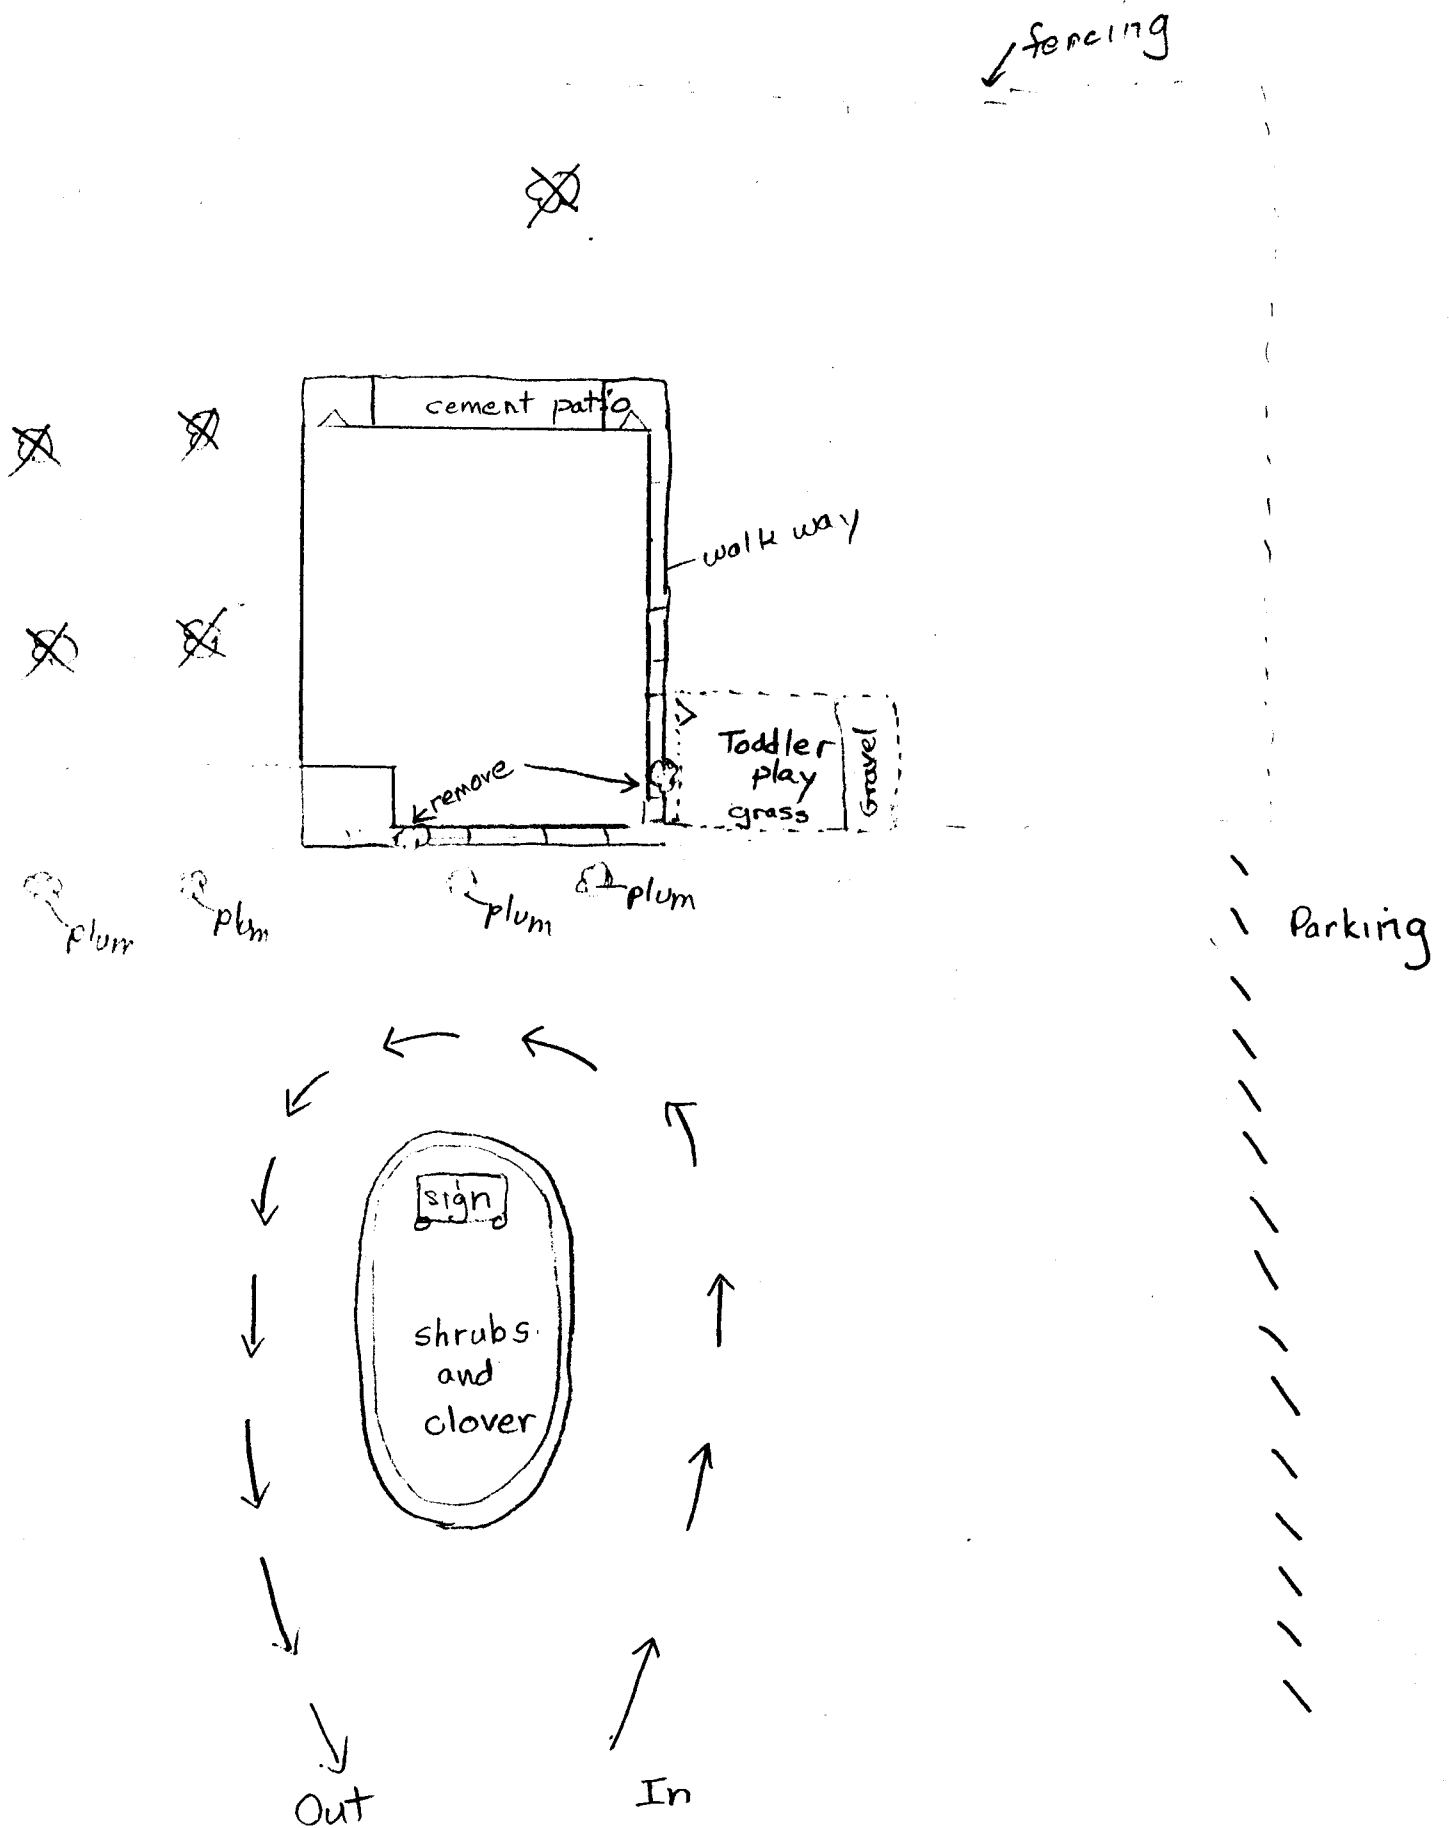 fencing
cement patio
walk way
Toddler
play
grass
Gravel
remove
plum
plum
plum
plum
Parking
sign
shrubs
and
clover
Out
In